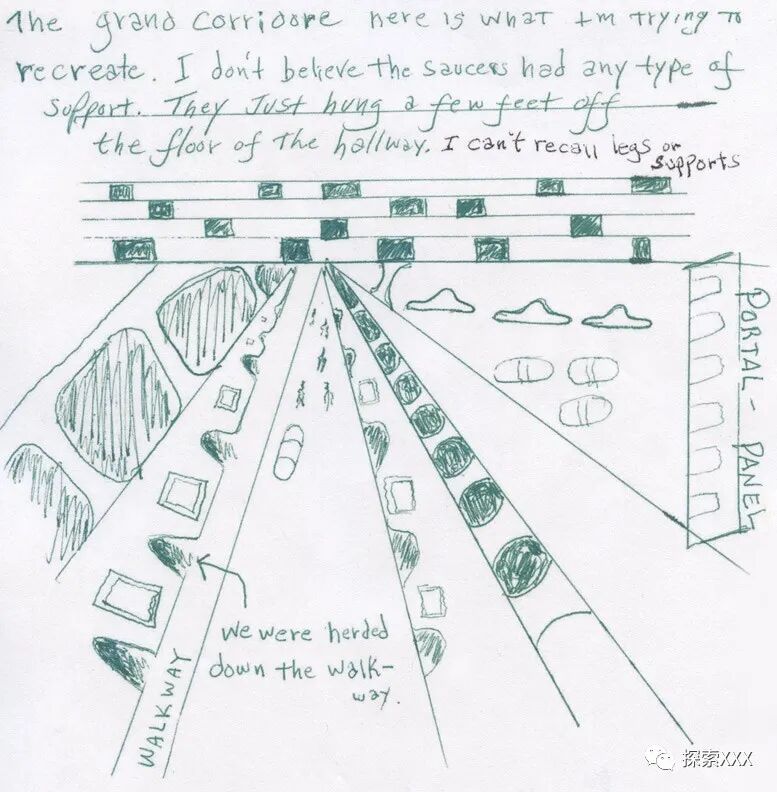 The grand corridore here is what I'm trying to
recreate. I don't believe the saucers had any type of
support. They Just hung a few feet off
the floor of the hallway. I can't recall legs or
supports
PORTAL - PANEL
we were herded
down the walk-
way.
WALKWAY
探索XXX